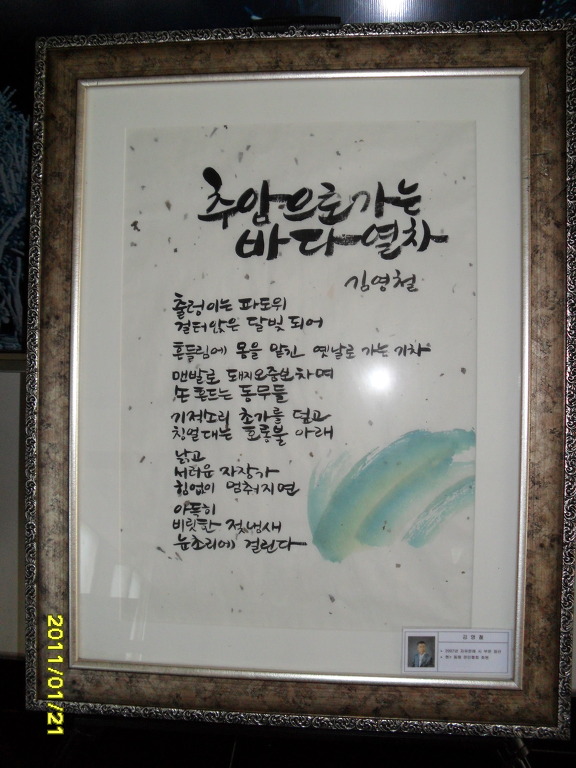 추암으로 가는
바다열차
김영철
출렁이는 파도위
걸터앉은 달빛 되어
흔들림에 몸을 맡긴 옛날로 가는 기차
맨발로 돼지오줌보차며
손 흔드는 동무들
기적소리 초가를 덮고
칭얼대는 호롱불 아래
낡고
서러운 자장가
힘없이 멈춰지면
아득히
비릿한 젖냄새
눈초리에 걸린다
김 영 철
2011/01/21